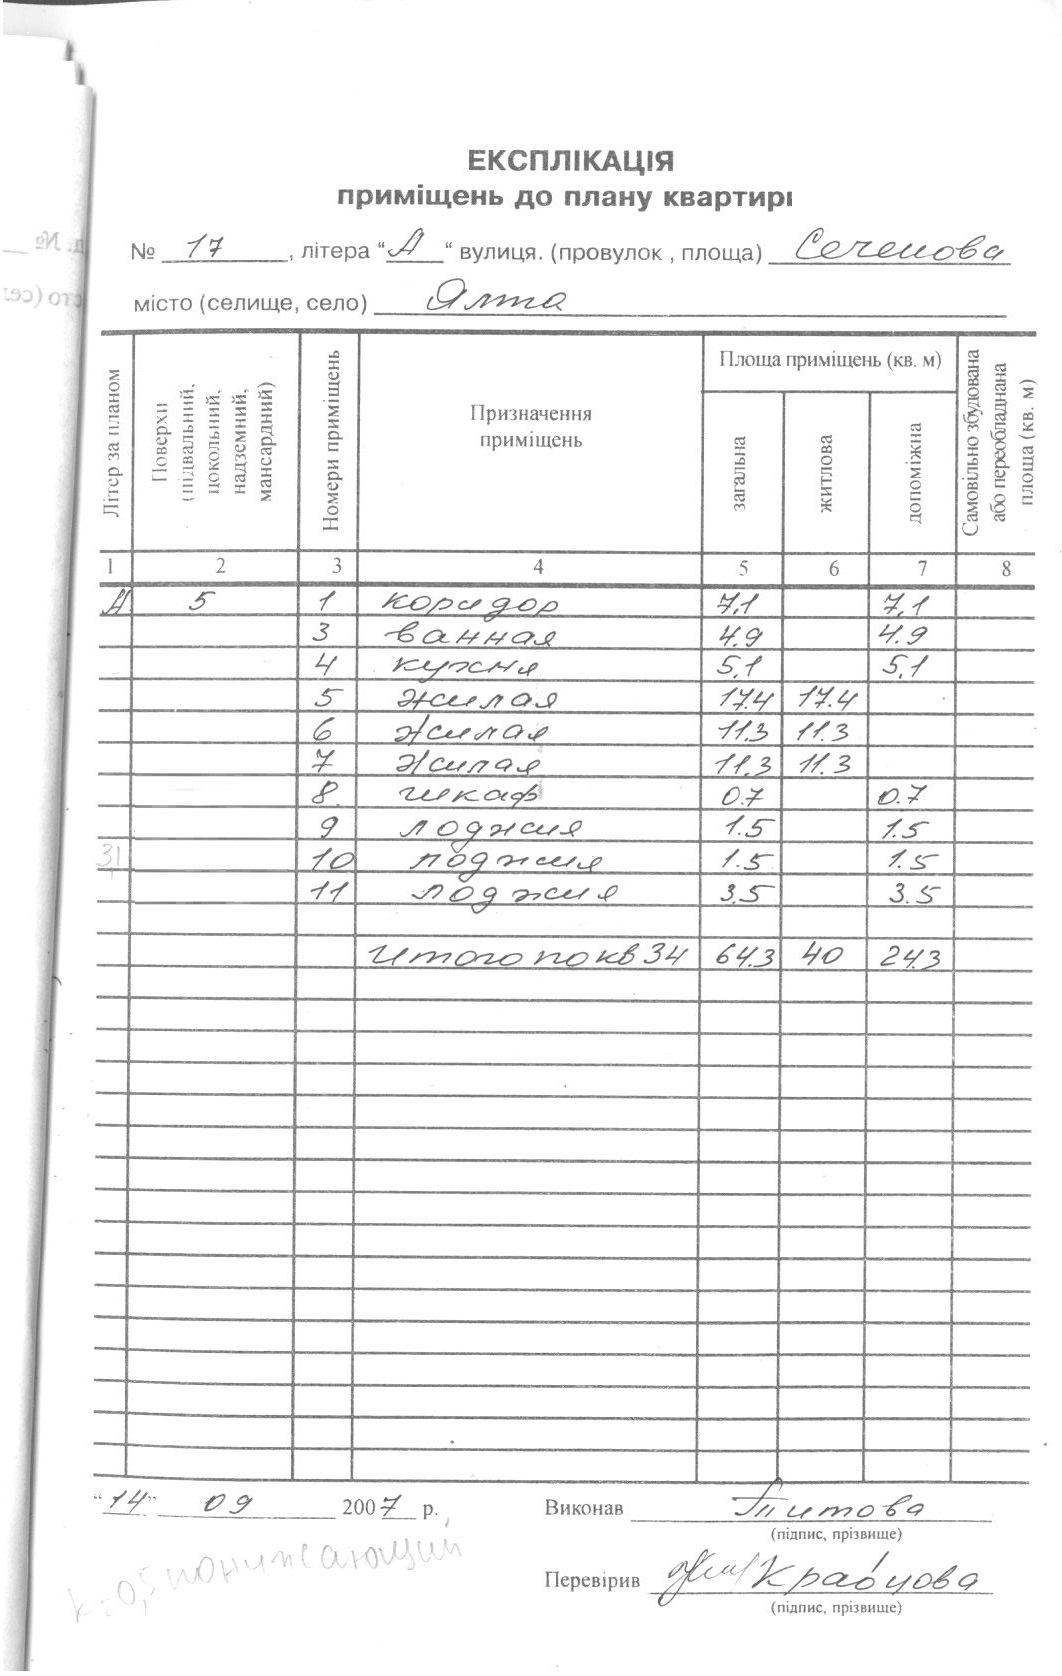 д. №
сто (сел
ЕКСПЛІКАЦІЯ
приміщень до плану квартирі
№ 17, літера “А“ вулиця. (провулок , площа) Сеченова
місто (селище, село) Ялта
Літер за планом
Поверхи (підвальний, цокольний, надземний, мансардний)
Номери приміщень
Призначення приміщень
Площа приміщень (кв. м)
загальна
житлова
допоміжна
Самовільно збудована або переобладнана площа (кв. м)
1 2 3 4 5 6 7 8
А 5 1 коридор 7,1 7,1
3 ванная 4.9 4.9
4 кухня 5,1 5,1
5 жилая 17.4 17.4
6 жилая 11.3 11.3
7 жилая 11,3 11.3
8 шкаф 0.7 0.7
9 лоджия 1.5 1.5
31 10 лоджия 1.5 1.5
11 лоджия 3.5 3.5
Итого по кв 34 64.3 40 24.3
“14” 09 2007 р. Виконав Титова
(підпис, прізвище)
к=0,5 понижающий
Перевірив Кравцова
(підпис, прізвище)